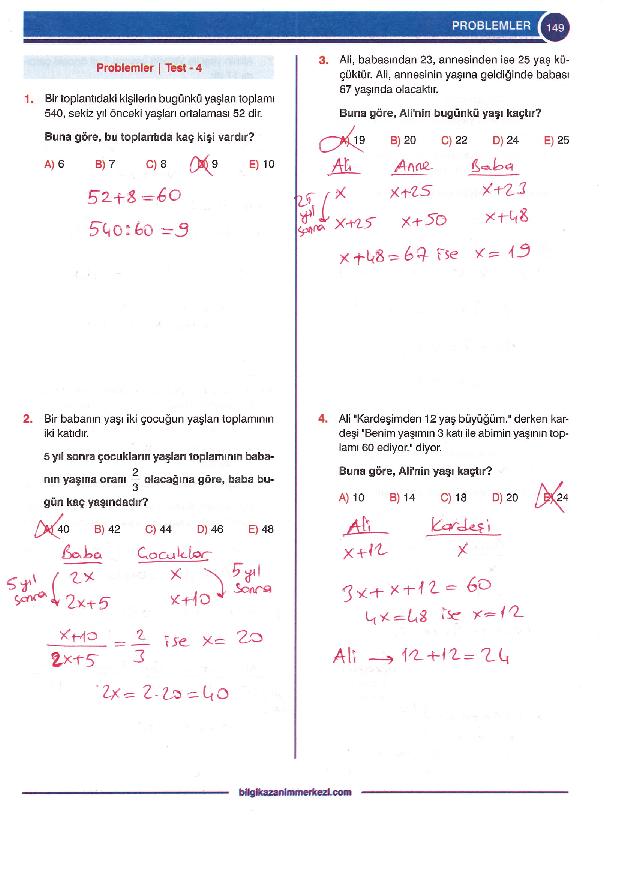 PROBLEMLER 149
Problemler | Test - 4
1. Bir toplantıdaki kişilerin bugünkü yaşları toplamı
540, sekiz yıl önceki yaşları ortalaması 52 dir.
Buna göre, bu toplantıda kaç kişi vardır?
A) 6 B) 7 C) 8 D) 9 E) 10
52+8=60
540:60=9
2. Bir babanın yaşı iki çocuğun yaşları toplamının
iki katıdır.
5 yıl sonra çocukların yaşları toplamının baba-
nın yaşına oranı 2/3 olacağına göre, baba bu-
gün kaç yaşındadır?
A) 40 B) 42 C) 44 D) 46 E) 48
Baba Çocuklar
5 yıl sonra 2x x 5 yıl sonra
2x+5 x+10
x+10/2x+5 = 2/3 ise x= 20
2x=2.20=40
3. Ali, babasından 23, annesinden ise 25 yaş kü-
çüktür. Ali, annesinin yaşına geldiğinde babası
67 yaşında olacaktır.
Buna göre, Ali'nin bugünkü yaşı kaçtır?
A) 19 B) 20 C) 22 D) 24 E) 25
Ali Anne Baba
25 yıl sonra x x+25 x+23
x+25 x+50 x+48
x+48=67 ise x= 19
4. Ali "Kardeşimden 12 yaş büyüğüm." derken kar-
deşi "Benim yaşımın 3 katı ile abimin yaşının top-
lamı 60 ediyor." diyor.
Buna göre, Ali'nin yaşı kaçtır?
A) 10 B) 14 C) 18 D) 20 E) 24
Ali Kardeşi
x+12 x
3x+x+12=60
4x=48 ise x=12
Ali → 12+12=24
bilgikazanimmerkezi.com